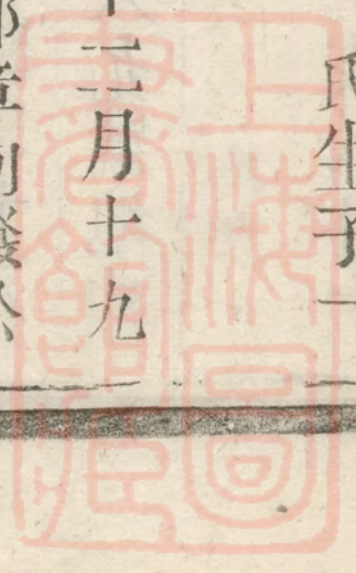 氏生子一
十二月十九
上海圖
書館藏